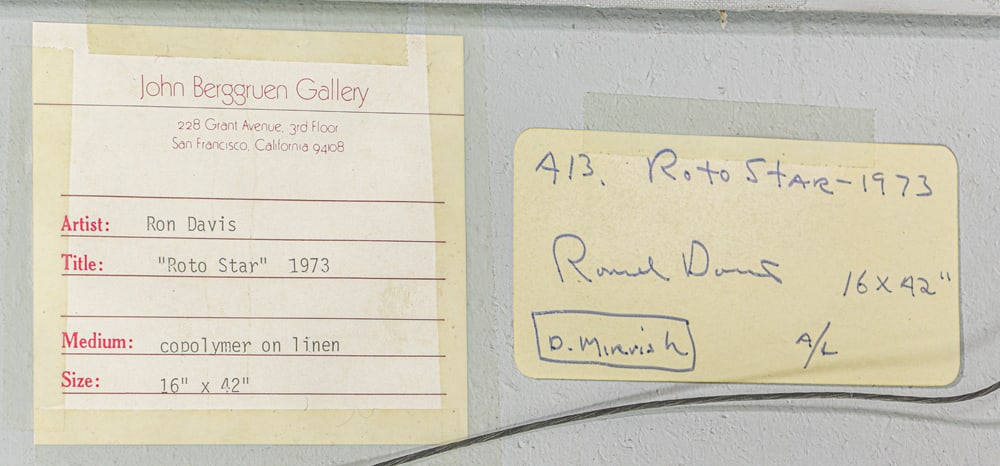 John Berggruen Gallery
228 Grant Avenue, 3rd Floor
San Francisco, California 94108
Artist: Ron Davis
Title: "Roto Star" 1973
Medium: copolymer on linen
Size: 16" x 42"
A13. Roto Star-1973
Ronald Davis 16 x 42"
D. Mirvish A/L